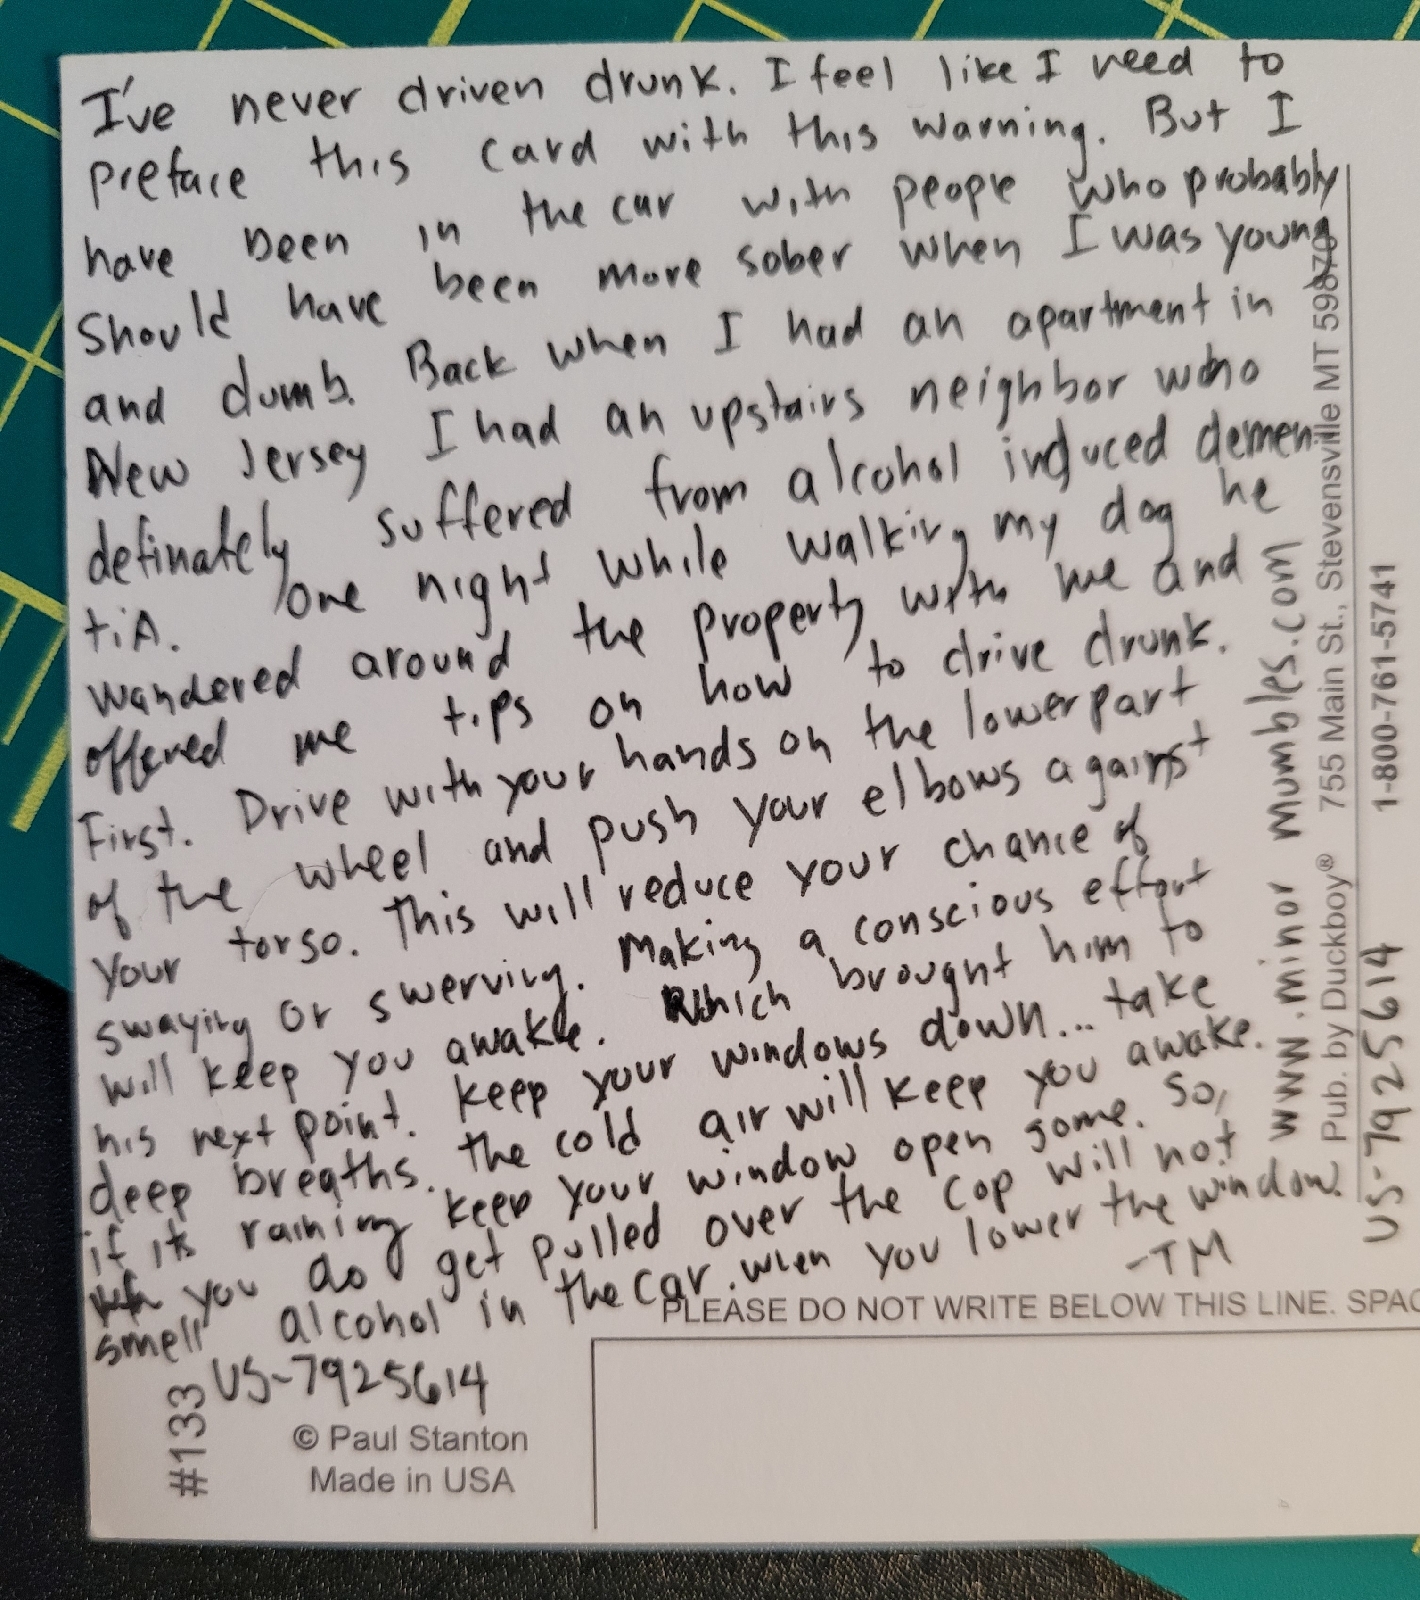 I've never driven drunk. I feel like I need to
preface this card with this warning. But I
have been in the car with people who probably
should have been more sober when I was young
and dumb. Back when I had an apartment in
New Jersey I had an upstairs neighbor who
definately suffered from alcohol induced demen-
tiA. One night while walking my dog he
wandered around the property with me and
offered me tips on how to drive drunk.
First. Drive with your hands on the lower part
of the wheel and push your elbows against
your torso. This will reduce your chance of
swaying or swerving. Making a conscious effort
will keep you awake. Which brought him to
his next point. Keep your windows down... take
deep breaths. The cold air will keep you awake.
if its raining keep your window open some. So,
if you do get pulled over the cop will not
smell alcohol in the car when you lower the window.
-TM
US-7925614
www.minor mumbles.com
Pub. by Duckboy® 755 Main St., Stevensville MT 59870
1-800-761-5741
US-7925614
PLEASE DO NOT WRITE BELOW THIS LINE. SPAC
#133
© Paul Stanton
Made in USA